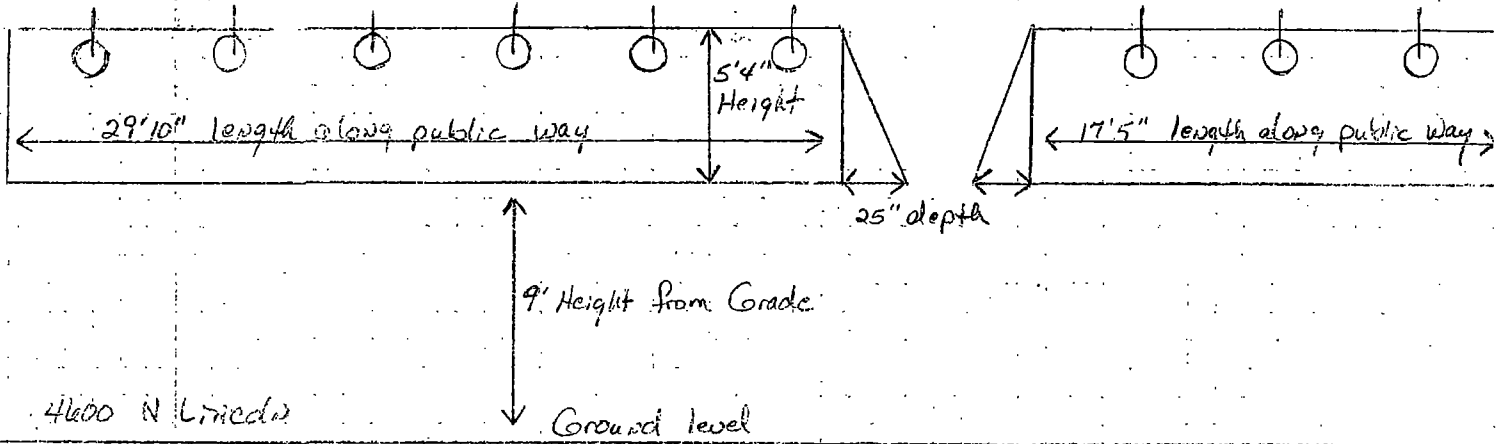 5'4"
Height
29'10" length along public way
17'5" length along public way
25" depth
9' Height from Grade
4600 N Lincoln
Ground level